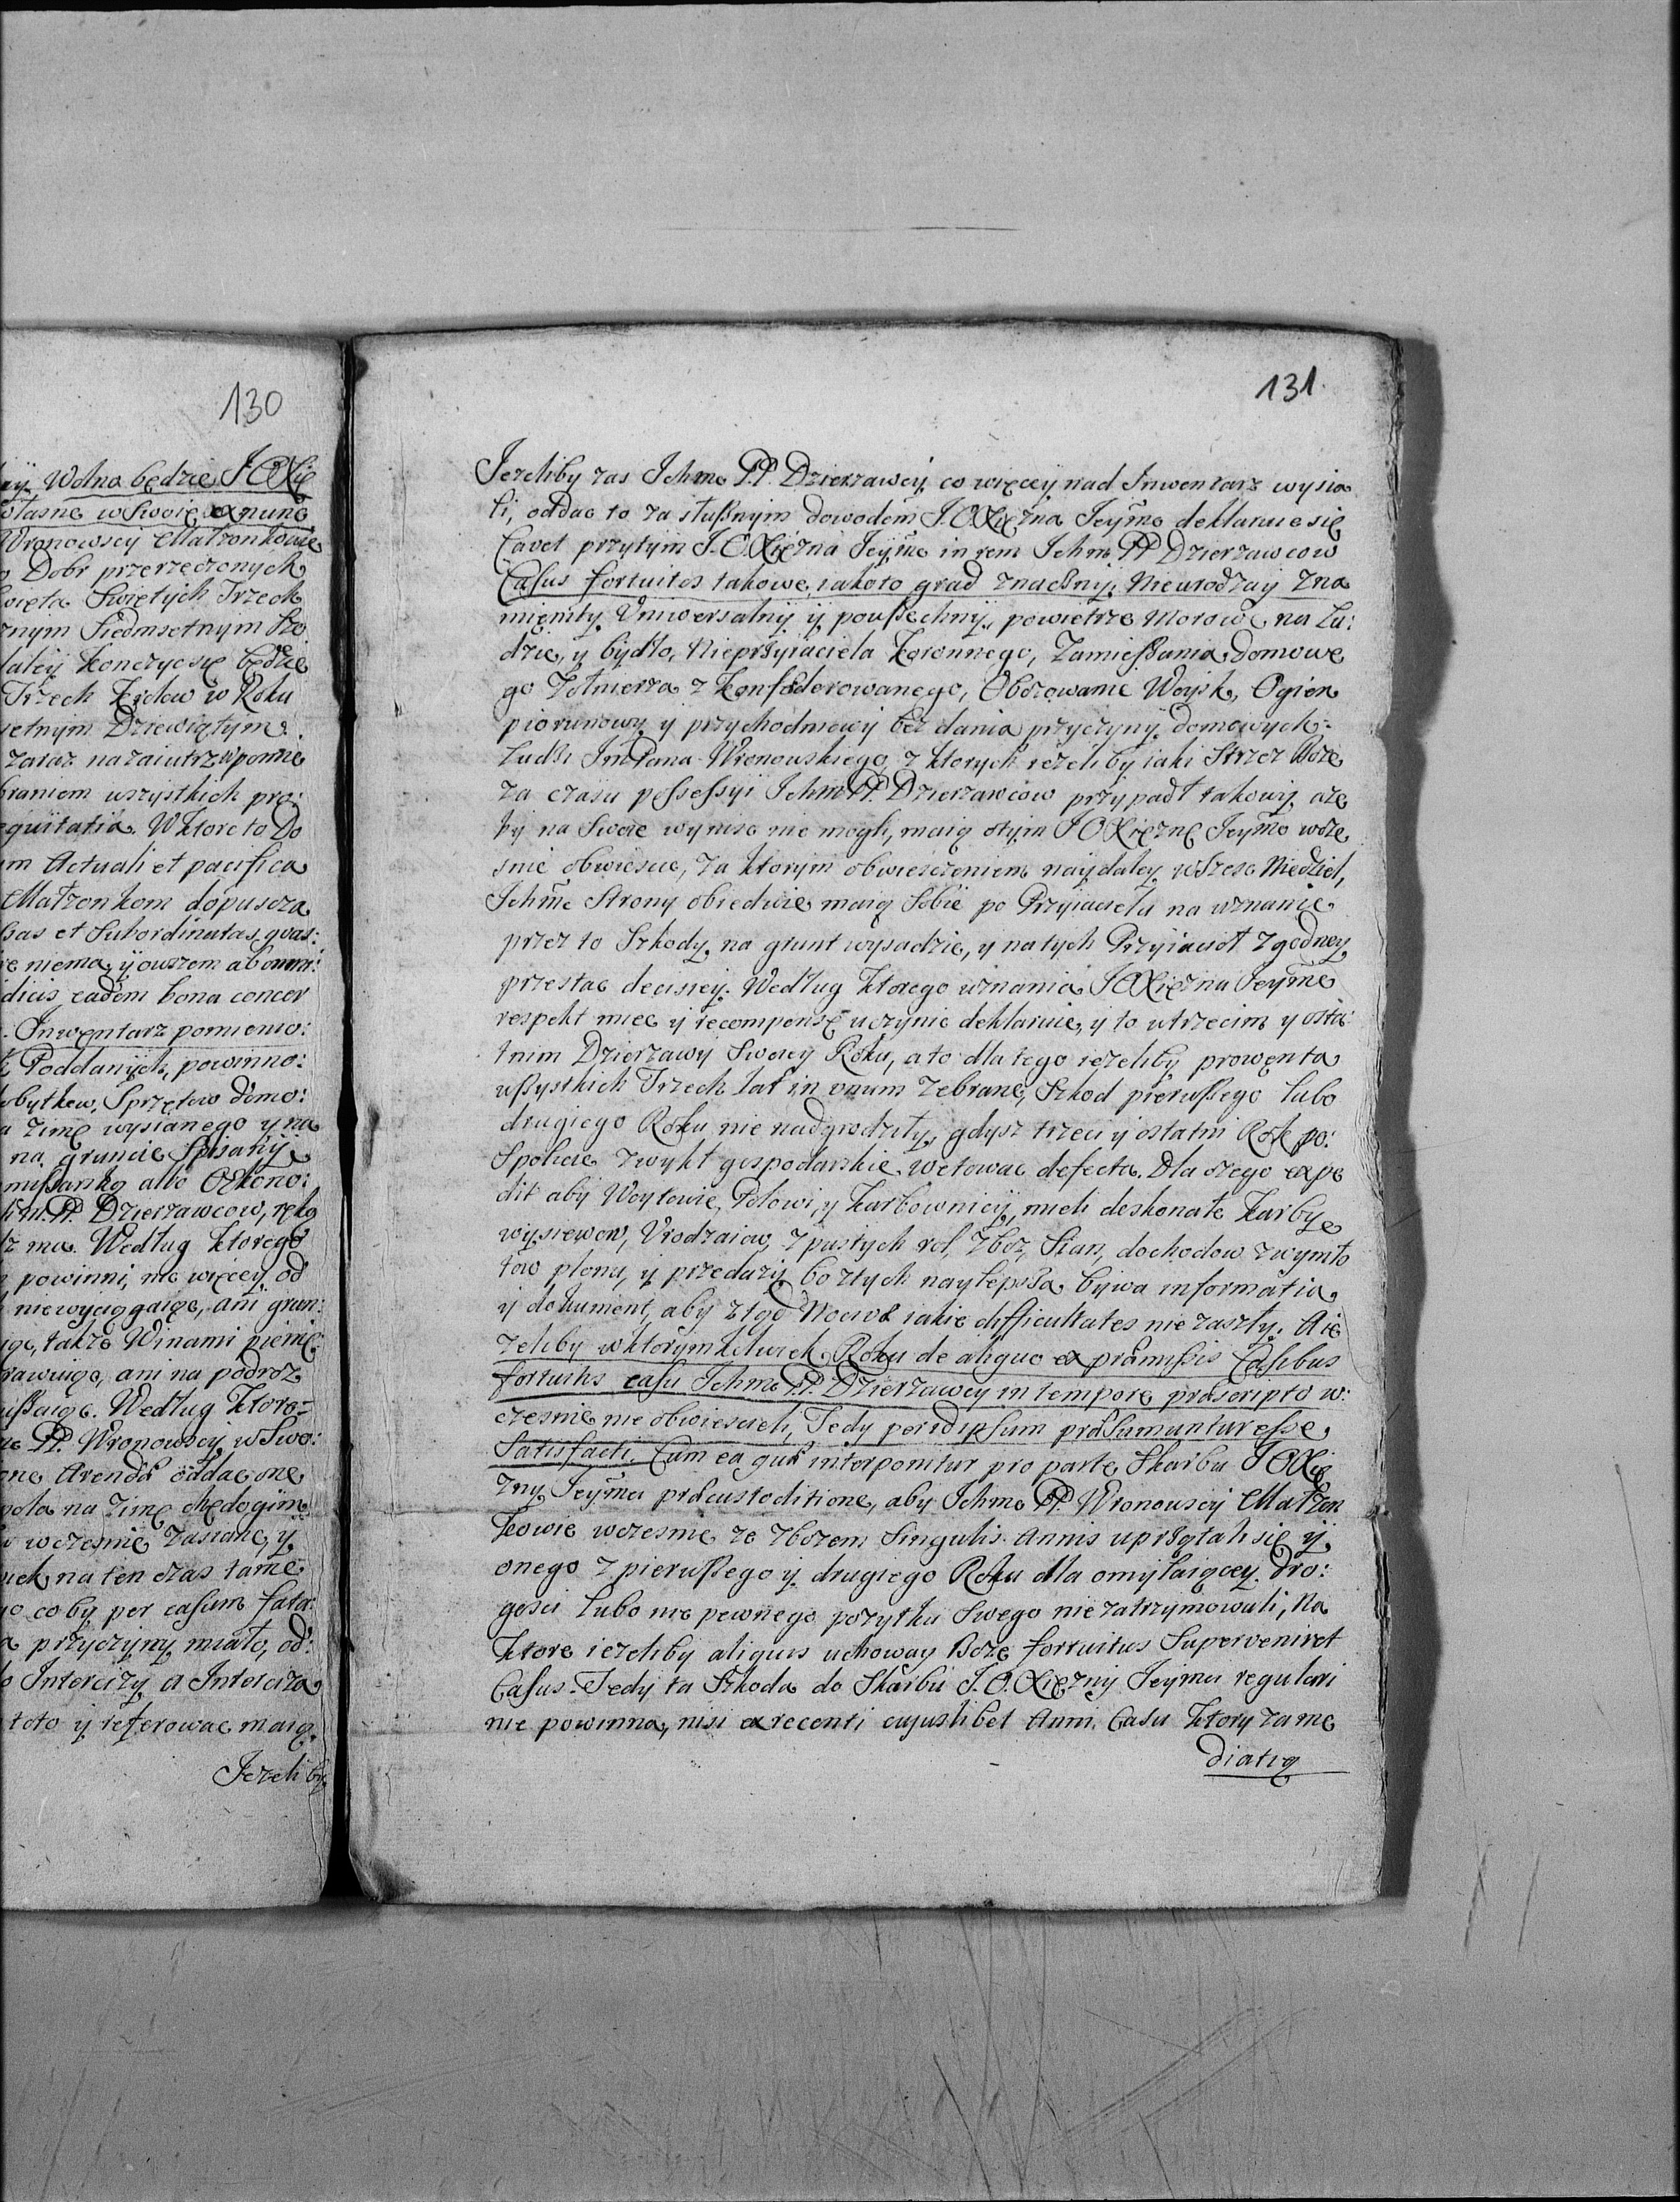 130
ÿ. Wolna będzie J.O.Xię
własne w Swoię ex nunc
Wronowscy Małzonkowie
Dobr przerzeczonych
Swięta Swiętych Trzech
znym Siedmsetnym Szo
daleÿ konczyc się będzie
Trzech Krolow w Roku
setnym Dziewiątym.
zaraz nazaiutrz
braniem wszystkich pro:
equitatia. W ktore to Do
im Actuali et pacifica
Małzonkom dopuszcza
et Subordinatas
niema, ÿ owszem ab omni:
dicis eadem bona concer
. Inwentarz pomienio:
Poddanÿch, powinno:
bytkow, Sprzętow domo:
zimę wysianego y na
na gruncie Spisanÿ
albo Oekono:
PP. Dzierzawcow, ręką
ma. Według ktorego
powinni, nic więcey od
niewyciągaiąc, ani grun:
, także Winami pienię:
, ani na podroz
. Według ktoro=
PP. Wronowscy w Swo:
Arendą oddac one
pola na zimę chędogim
wczesnie zasiane, y
na ten czas tame
co by per casum fata:
przyczyny miało, od:
Intercizy, a Interciza
toto ÿ referowac maią.
Jezeliby
131.
Jezeliby zas Jchmc PP. Dzierzawcy co więcey nad Inwentarz wysia
li, oddac to za słußnym dowodem J.O.Xiężna Jeÿmc deklaruie się
Cavet przytym J.O.Xiężna Jeÿmc in rem Jchm PP Dzierzawcow
Casus fortuitos takowe, iako to grad znacßny, Nieurodzaÿ zna
mięnity Vniwersalnÿ ÿ powßechnÿ, powietrze Morowe na Lu:
dzie, y bÿdło, Nieprzÿiaciela koronnego, Zamießania domowe
go Zołnierza z konfæderowanego, Obozowanie Woysk, Ogien
piorunowy ÿ przychodniowÿ bez dania przyczynÿ domowych=
Ludzi ImPana Wronowskiego, z ktorych iezeliby iaki Strzez Boze
za czasu possessyi Jchm PP. Dzierzawcow przypadł takowÿ aze
bÿ na Swoie wyniśc nie mogli, maią otÿm J O Xięznę Jeymc wcze
snie obwiescic, za ktorym obwieszczeniem naÿdaleÿ w Szesc Niedziel,
Jchmc Strony obiedwie maią Sobie po Przyiacielu na uznanie
przez to Szkody na grunt wysadzic, y na tych Przyiacioł zgodney
przestac decisiey. Według ktorego uznania J O Xięzna Jeymc
respekt miec ÿ recompensę uczynic deklaruie, y to w trzecim y osta:
tnim Dzierzawÿ Swoiey Roku, a to dla tego iezeliby prowenta
wßystkich Trzech Lat in vnum zebrane, Szkod pierwßego lubo
drugiego Roku nie nadgrodziły, gdysz trzeci y ostatni Rok po:
Spolicie zwykł gospodarskie wetowac defecta. Dla czego expe
dit abÿ Woytowie, Polowi, y Karbownicÿ, mieli doskonałe Karby
wysiewow, Vrodzaiow, z pustych rol, zboz, Sian, dochodow z wymło
tow plonu, ÿ przedazÿ, bo z tych naylepsza bÿwa informatia
ÿ dokument, aby z tąd iakie difficultates nie zaszły. A ie
zeliby w ktorymkolwiek Roku de aliquo ex præmissis Casibus
fortuitis casu Jchmc PP. Dzierzawcy in tempore præscripto w:
czesnie nie obwiescieli, Tedy per id ipsum præsumuntur esse
Satisfacti. Cum ea quæ interponitur pro parte Skarbu J O Xię
zny Jeÿmci præcustoditione, aby Jchmc PP. Wronowscÿ Małzon
kowie wczesnie ze zbozem Singulis Annis uprzątali się ÿ
onego z pierwßego ÿ drugiego Roku dla omÿlaiącey dro:
gosci lubo nie pewnego pozytku Swego nie zatrzymowali, Na
ktore iezeliby aliquis uchoway Boze fortuitus Superveniret
Casus. Tedÿ ta Szkoda do Skarbu J.O.Xięznÿ Jeymci regulari
nie powinna, nisi ex recenti cujuslibet Anni Casu ktory za me
diatią